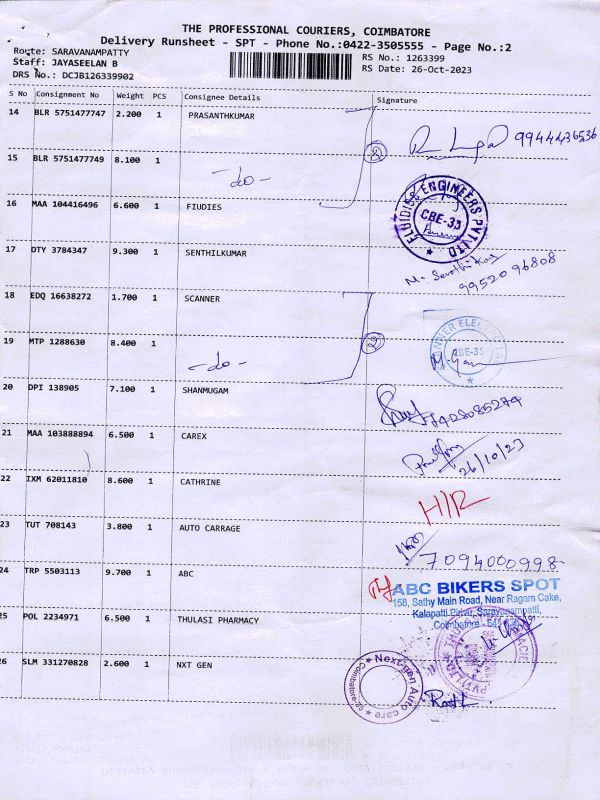 THE PROFESSIONAL COURIERS, COIMBATORE
Delivery Runsheet - SPT - Phone No.:0422-3505555 - Page No.:2
Route: SARAVANAMPATTY
Staff: JAYASEELAN B
DRS No.: DCJB126339902
RS No.: 1263399
RS Date: 26-Oct-2023
S No Consignment No Weight PCS Consignee Details Signature
14 BLR 5751477747 2.200 1 PRASANTHKUMAR
9944436536
15 BLR 5751477749 8.100 1 -do-
16 MAA 104416496 6.600 1 FIUDIES
FLUIDISS ENGINEERS PVT LTD
CBE-35
17 OTY 3784347 9.300 1 SENTHILKUMAR
9952096808
18 EDQ 16638272 1.700 1 SCANNER
19 MTP 1288630 8.400 1 -do-
CBE-35
20 DPI 138905 7.100 1 SHANMUGAM
21 MAA 103888894 6.500 1 CAREX
26/10/23
22 IXM 62011810 8.600 1 CATHRINE
H/R
23 TUT 708143 3.800 1 AUTO CARRAGE
7094000998
24 TRP 5503113 9.700 1 ABC
ABC BIKERS SPOT
158, Sathy Main Road, Near Ragam Cake,
Kalapatti Pirivu, Saravanampatti,
Coimbatore -
25 POL 2234971 6.500 1 THULASI PHARMACY
26 SLM 331270828 2.600 1 NXT GEN
Next-gen Auto care
coimbatore